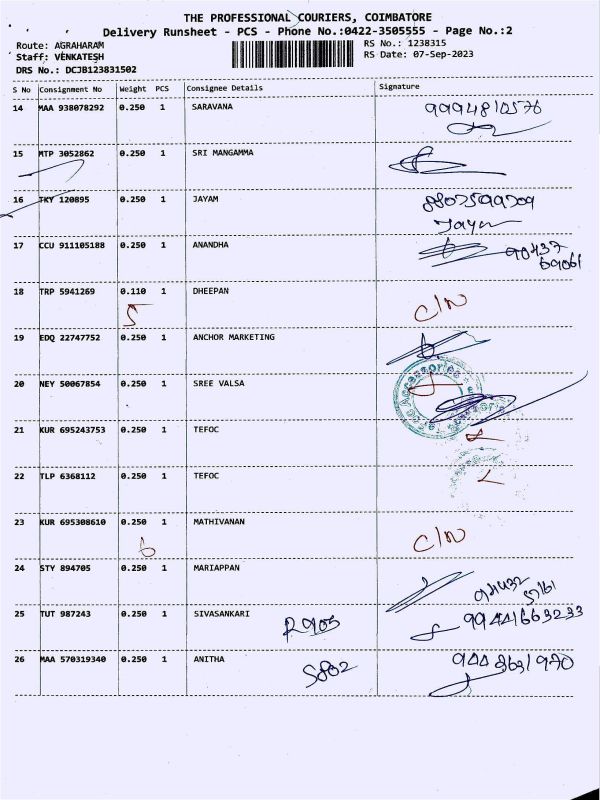 THE PROFESSIONAL COURIERS, COIMBATORE
Delivery Runsheet - PCS - Phone No.:0422-3505555 - Page No.:2
Route: AGRAHARAM
RS No.: 1238315
Staff: VENKATESH
RS Date: 07-Sep-2023
DRS No.: DCJB123831502
S No Consignment No Weight PCS Consignee Details Signature
14 MAA 938078292 0.250 1 SARAVANA 9994810576
15 MTP 3052862 0.250 1 SRI MANGAMMA
16 TKY 120895 0.250 1 JAYAM
Jayam
17 CCU 911105188 0.250 1 ANANDHA 90437
69061
18 TRP 5941269 0.110 1 DHEEPAN C/N
5
19 EDQ 22747752 0.250 1 ANCHOR MARKETING
20 NEY 50067854 0.250 1 SREE VALSA
Accessories
21 KUR 695243753 0.250 1 TEFOC
22 TLP 6368112 0.250 1 TEFOC
23 KUR 695308610 0.250 1 MATHIVANAN C/N
6
24 STY 894705 0.250 1 MARIAPPAN
25 TUT 987243 0.250 1 SIVASANKARI R905 99441663233
26 MAA 570319340 0.250 1 ANITHA S802